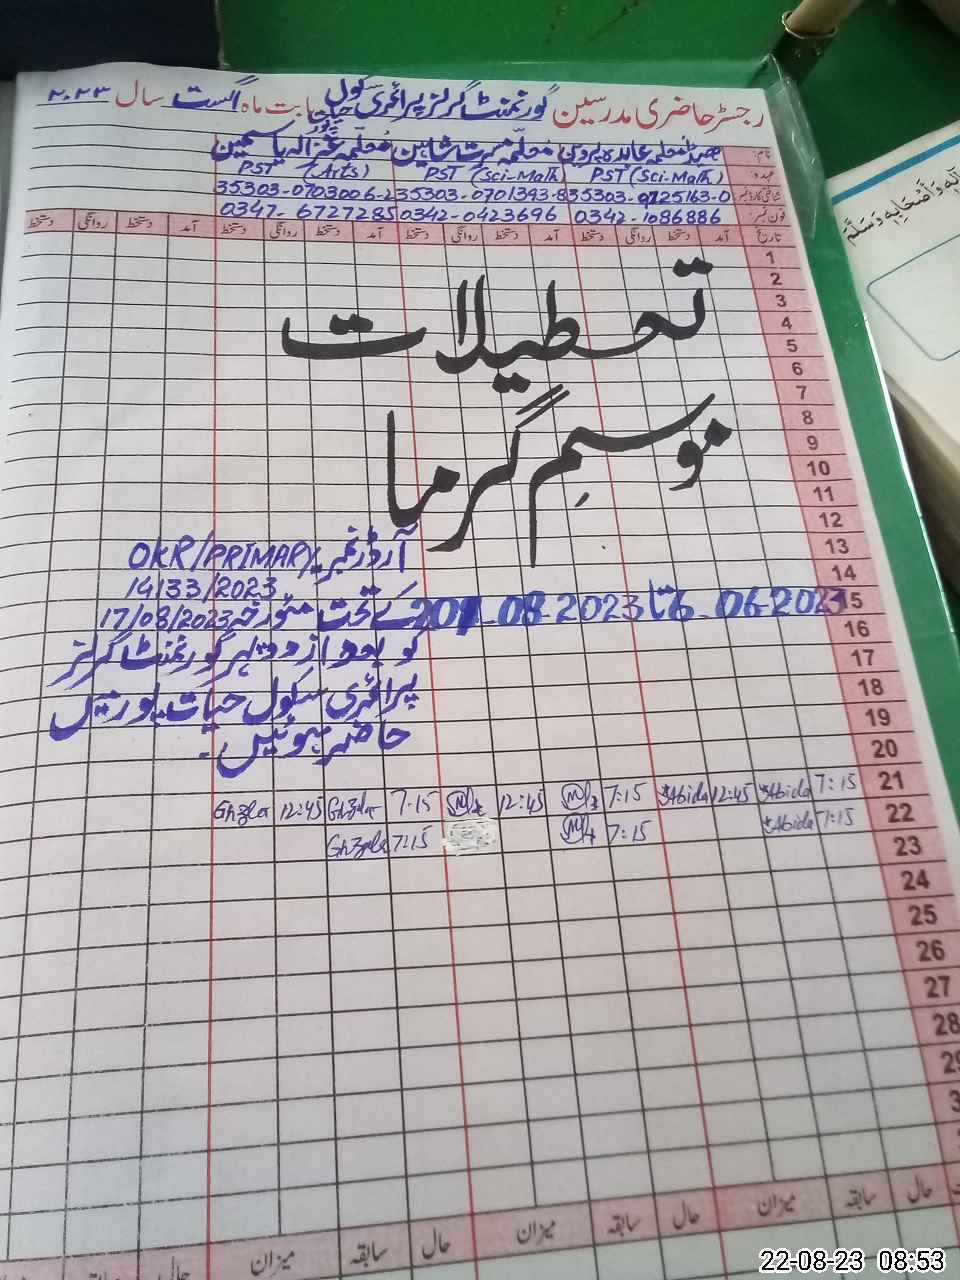 رجسٹر حاضری مدرسین گورنمنٹ گرلز پرائمری سکول حیات پور بابت ماہ اگست سال ۲۰۲۳
نام: معلمہ عابدہ پروین معلمہ مسرت شاہین معلمہ غزالہ یاسمین
عہدہ: PST (Sci-Math) PST (Sci-Math) PST (Arts)
شناختی کارڈ نمبر: 35303-0725163-0 35303-0701393-8 35303-0703006-2
فون نمبر: 0342-1086886 0342-0423696 0347-6727285
تاریخ آمد دستخط روانگی دستخط آمد دستخط روانگی دستخط آمد دستخط روانگی دستخط آمد دستخط روانگی دستخط
1
2
3
تعطیلات
4
5
6
7
8
موسمِ گرما
9
10
11
12
13
آرڈر نمبر OKR/PRIMARY
14
14133/2023
15
6-06-2023 تا 20-08-2023
کے تحت مورخہ 17/08/2023
16
کو بعد از دوپہر گورنمنٹ گرلز
17
پرائمری سکول حیات پور میں
18
حاضر ہوئیں۔
19
20
21 7:15 Abida 12:45 Abida 7:15 12:45 7:15 Ghzla 12:45 Ghzla
22 7:15 Abida 7:15 7:15 Ghzla
23
24
25
26
27
28
29
حال سابقہ میزان حال سابقہ میزان حال سابقہ میزان حال
وَأَصْحَابِهِ وَسَلَّمَ
22-08-23 08:53